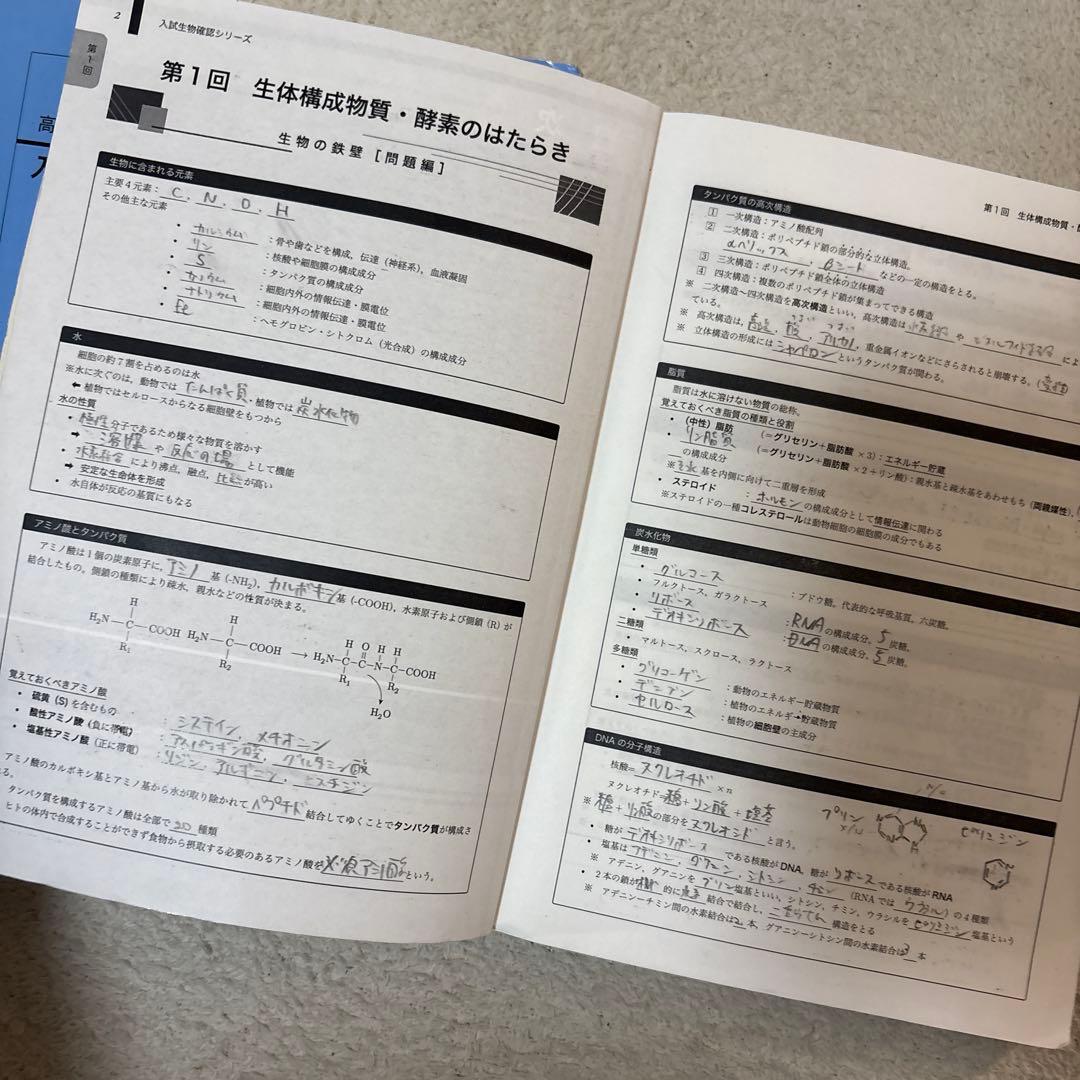 2
入試生物確認シリーズ
第1回
第1回 生体構成物質・酵素のはたらき
生物の鉄壁 [問題編]
生物に含まれる元素
主要4元素:C, N, O, H
その他主な元素
・カルシウム:骨や歯などを構成,伝達(神経系),血液凝固
・リン:核酸や細胞膜の構成成分
・S:タンパク質の構成成分
・カリウム:細胞内外の情報伝達・膜電位
・ナトリウム:細胞内外の情報伝達・膜電位
・Fe:ヘモグロビン・シトクロム(光合成)の構成成分
水
細胞の約7割を占めるのは水
※水に次ぐのは,動物ではたんぱく質,植物では炭水化物
⬅植物ではセルロースからなる細胞壁をもつから
水の性質
・極性分子であるため様々な物質を溶かす
➡溶媒や反応の場として機能
・水素結合により沸点,融点,比熱が高い
➡安定な生命体を形成
・水自体が反応の基質にもなる
アミノ酸とタンパク質
アミノ酸は1個の炭素原子に,アミノ基(-NH₂),カルボキシ基(-COOH),水素原子および側鎖(R)が
結合したもの。側鎖の種類により疎水,親水などの性質が決まる。
H H H O H H
H₂N-C-COOH H₂N-C-COOH → H₂N-C-C-N-C-COOH
R₁ R₂ R₁ R₂
H₂O
覚えておくべきアミノ酸
・硫黄(S)を含むもの:システイン,メチオニン
・酸性アミノ酸(負に帯電):アスパラギン酸,グルタミン酸
・塩基性アミノ酸(正に帯電):リジン,アルギニン,ヒスチジン
アミノ酸のカルボキシ基とアミノ基から水が取り除かれてペプチド結合してゆくことでタンパク質が構成さ
る。
タンパク質を構成するアミノ酸は全部で20種類
ヒトの体内で合成することができず食物から摂取する必要のあるアミノ酸を必須アミノ酸という。
第1回 生体構成物質・
タンパク質の高次構造
1 一次構造:アミノ酸配列
2 二次構造:ポリペプチド鎖の部分的な立体構造。
αヘリックス,βシートなどの一定の構造をとる。
3 三次構造:ポリペプチド鎖全体の立体構造
4 四次構造:複数のポリペプチド鎖が集まってできる構造
※ 二次構造~四次構造を高次構造といい,高次構造は水素結合やジスルフィド結合によ
ている。
※ 高次構造は,高温,酸,アルカリ,重金属イオンなどにさらされると崩壊する。(変性)
※ 立体構造の形成にはシャペロンというタンパク質が関わる。
脂質
脂質は水に溶けない物質の総称。
覚えておくべき脂質の種類と役割
・(中性)脂肪 (=グリセリン+脂肪酸×3):エネルギー貯蔵
・リン脂質 (=グリセリン+脂肪酸×2+リン酸):親水基と疎水基をあわせもち(両親媒性),
の構成成分
※疎水基を内側に向けて二重層を形成
・ステロイド:ホルモンの構成成分として情報伝達に関わる
※ステロイドの一種コレステロールは動物細胞の細胞膜の成分でもある
炭水化物
単糖類
・グルコース:ブドウ糖。代表的な呼吸基質。六炭糖。
・フルクトース,ガラクトース
・リボース:RNAの構成成分。5炭糖。
・デオキシリボース:DNAの構成成分。5炭糖。
二糖類
・マルトース,スクロース,ラクトース
多糖類
・グリコーゲン:動物のエネルギー貯蔵物質
・デンプン:植物のエネルギー貯蔵物質
・セルロース:植物の細胞壁の主成分
DNAの分子構造
核酸=ヌクレオチド×n
ヌクレオチド=糖+リン酸+塩基
※ 糖+リン酸の部分をヌクレオシドと言う。
・糖がデオキシリボースである核酸がDNA,糖がリボースである核酸がRNA
・塩基はアデニン,グアニン,シトシン,チミン(RNAではウラシル)の4種類
※ アデニン,グアニンをプリン塩基といい,シトシン,チミン,ウラシルをピリミジン塩基という
・2本の鎖が相補的に水素結合で結合し,二重らせん構造をとる
※ アデニンーチミン間の水素結合は2本,グアニンーシトシン間の水素結合は3本
プリン
ピリミジン